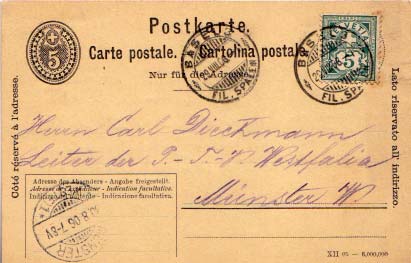 Postkarte.
Carte postale. Cartolina postale.
Nur für die Adresse.
5
BASEL
FIL. SPALEN
BASEL
FIL. SPALEN
HELVETIA
5
Côté réservé à l'adresse.
Lato riservato all'indirizzo.
Herrn Carl Dieckmann
Leiter der T.-T.-V. Westfalia
Münster W.
Adresse des Absenders - Angabe freigestellt.
Adresse de l'expéditeur - Indication facultative.
Indirizzo del mittente - Indicazione facoltativa.
MÜNSTER
8.06 7-8
XII 05 — 6,000,000